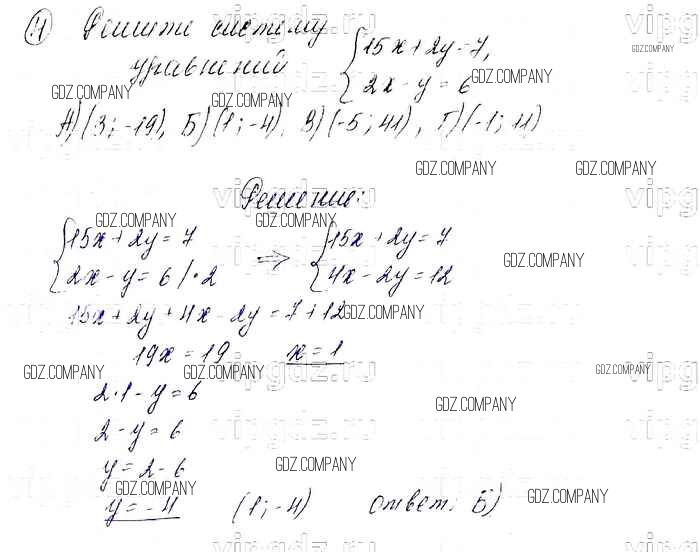 4) Решите систему
уравнений { 15x + 2y = 7,
2x - y = 6
А) (3; -19), Б) (1; -4), В) (-5; 41), Г) (-1; 11)
Решение:
{ 15x + 2y = 7 => { 15x + 2y = 7
2x - y = 6 / · 2 4x - 2y = 12
15x + 2y + 4x - 2y = 7 + 12
19x = 19 x = 1
2 · 1 - y = 6
2 - y = 6
y = 2 - 6
y = -4 (1; -4) Ответ: Б)
GDZ.COMPANY
vipgdz.ru